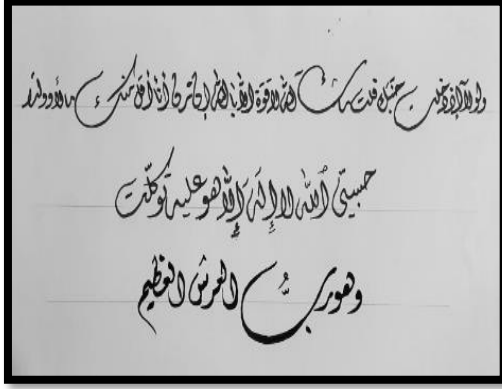 ولولا إذ دخلت جنتك قلت ما شاء الله لا قوة إلا بالله إن ترن أنا أقل منك مالا وولدا
حسبي ٱلله لا إله إلا هو عليه توكلت
وهو ربُّ العرش العظيم